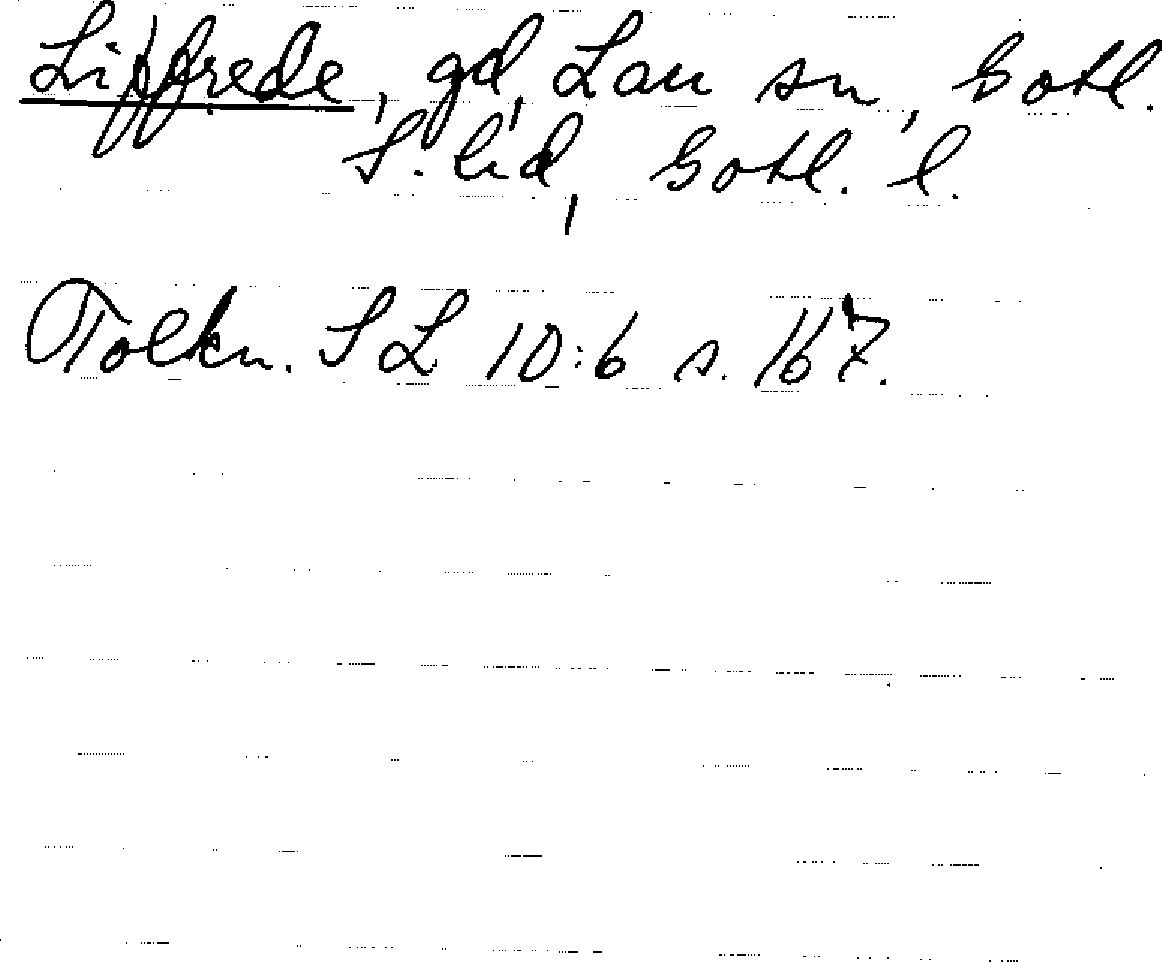 Liffrede, gd, Lau sn, Gotl.
S. hd, Gotl. l.
Tolkn. SL 10:6 s. 167.